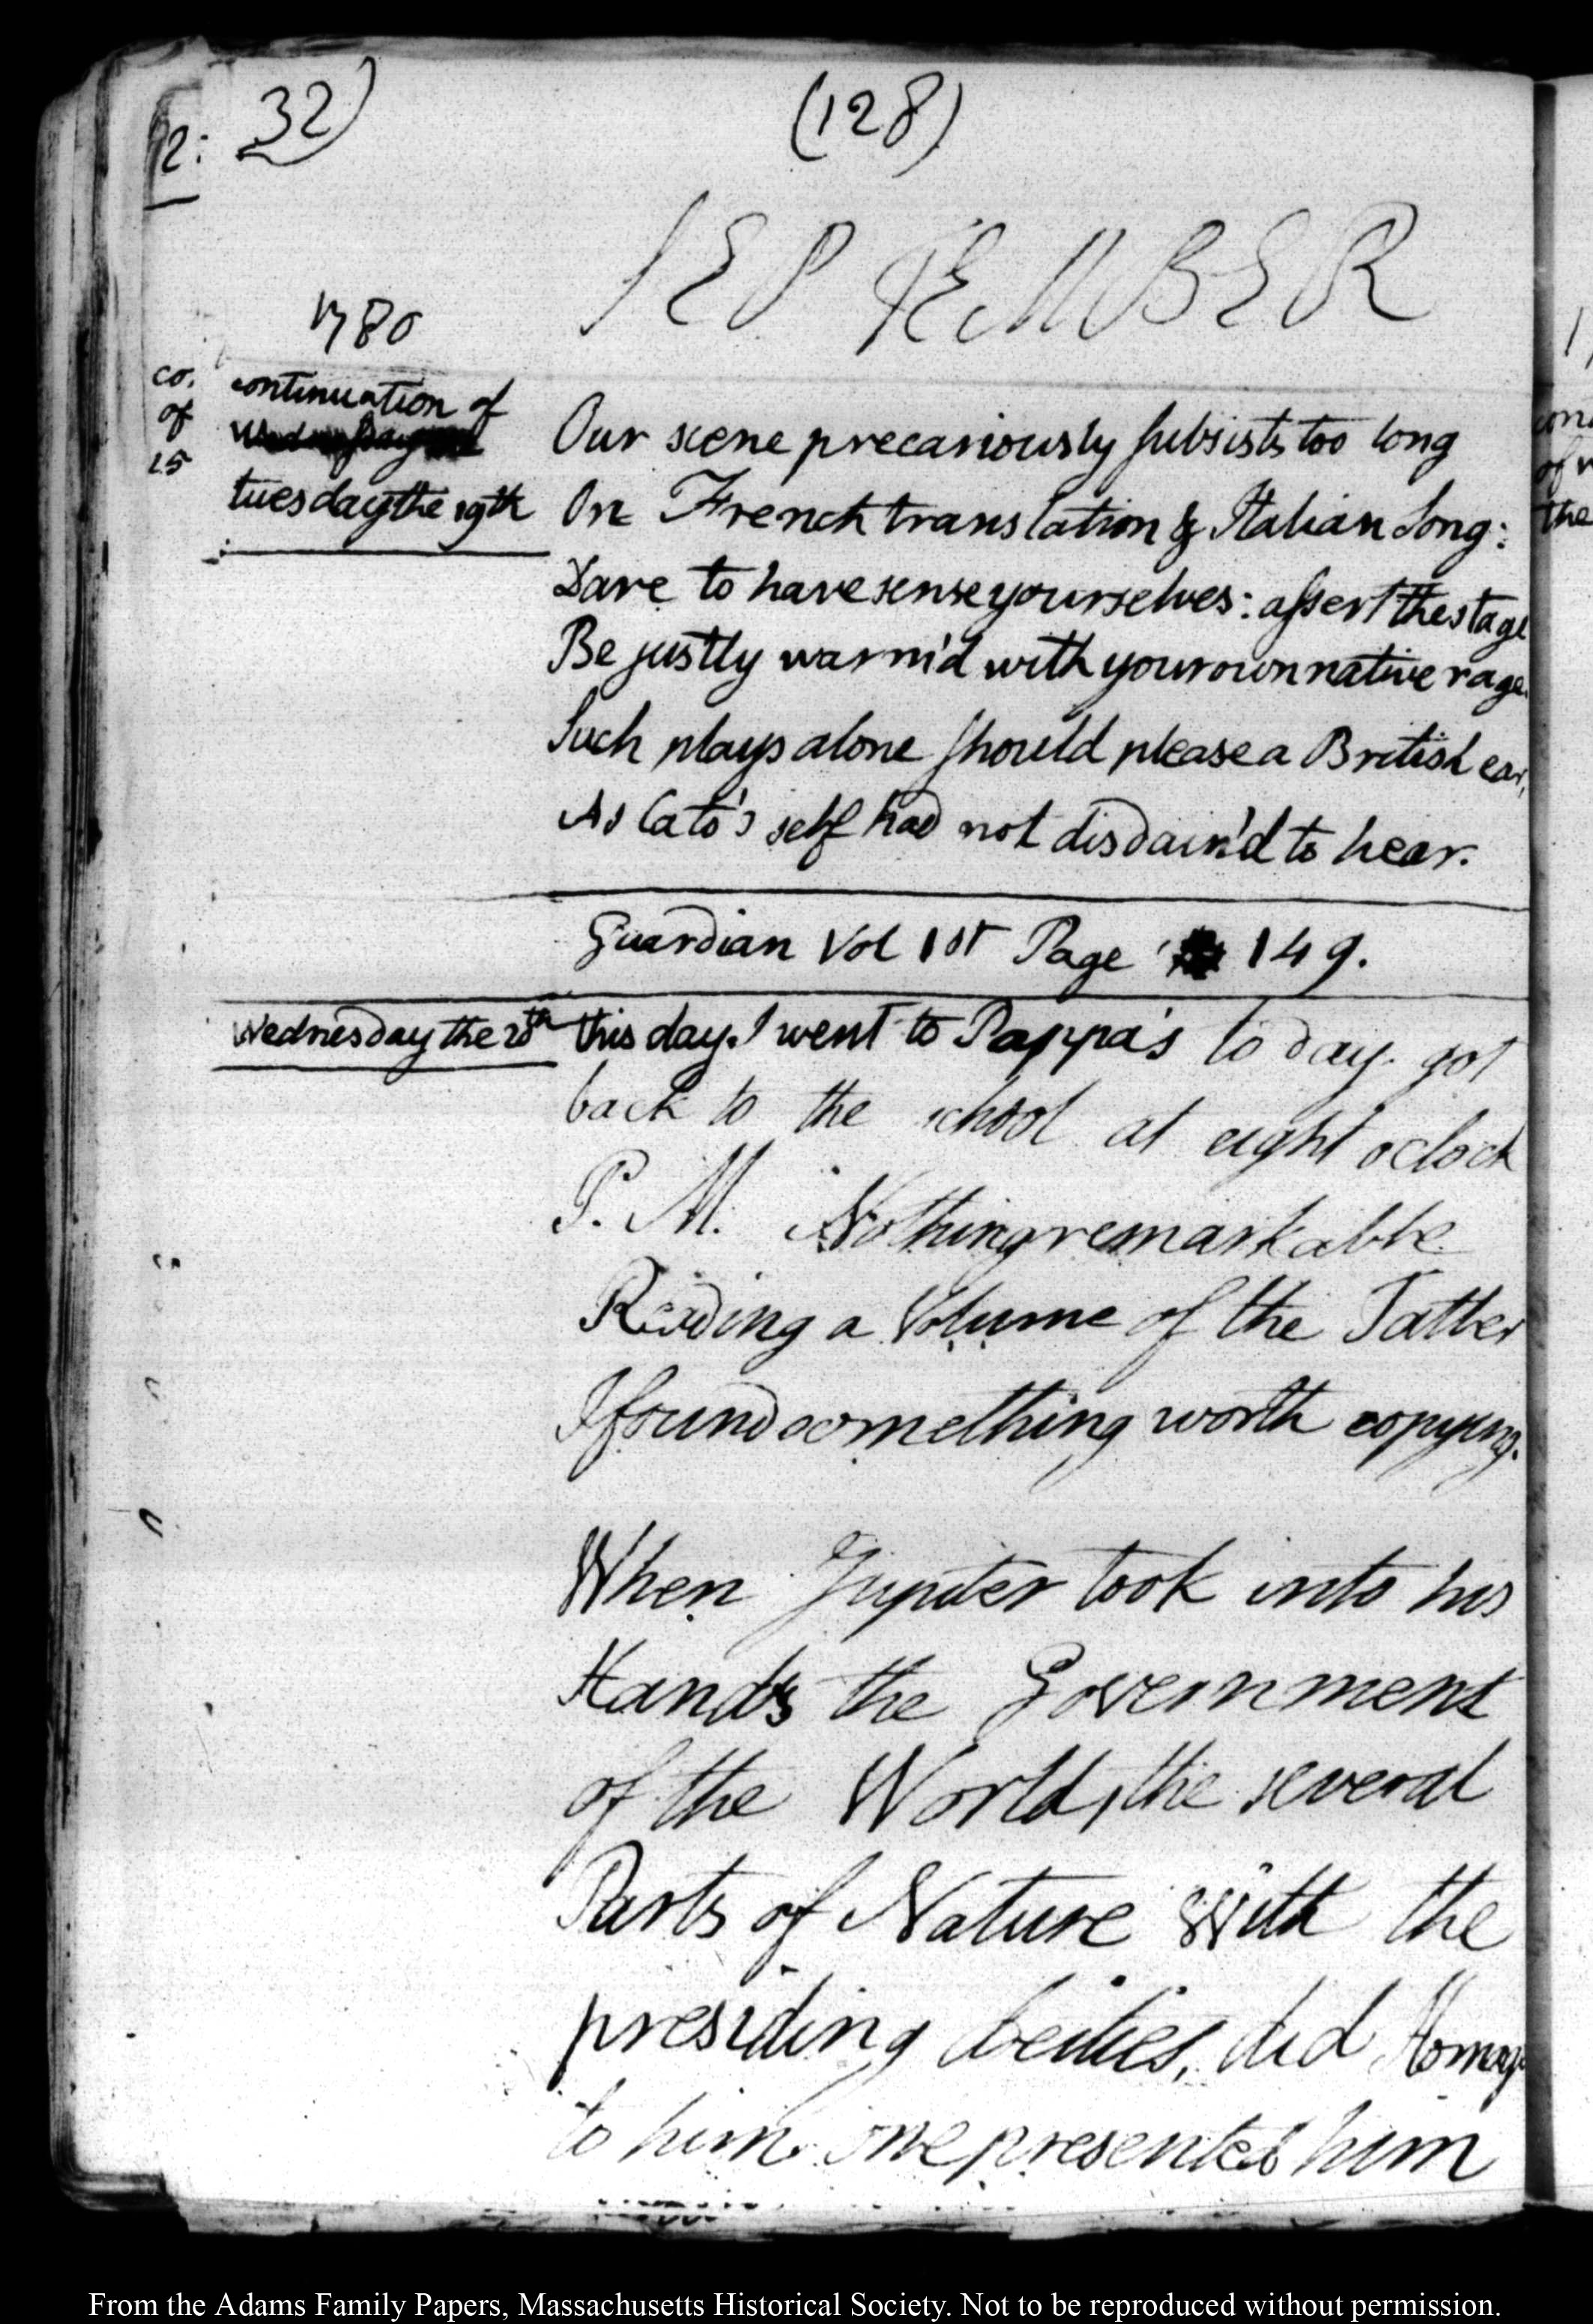 2:
32)
(128)
SEPTEMBER
1780
co.
of
15
continuation of
tuesday the 19th
Our scene precariously subsists too long
On French translation & Italian song:
Dare to have sense yourselves: assert the stage
Be justly warm'd with your own native rage.
Such plays alone should please a British ear,
As Cato's self had not disdain'd to hear.
Guardian Vol 1st Page 149.
Wednesday the 20th
this day. I went to Pappa's to day. got
back to the school at eight oclock
P. M. Nothing remarkable
Reading a Volume of the Tatler
I found something worth copying.
When Jupiter took into his
Hands the Government
of the World, the several
Parts of Nature With the
presiding deities, did Homage
to him. one presented him
From the Adams Family Papers, Massachusetts Historical Society. Not to be reproduced without permission.